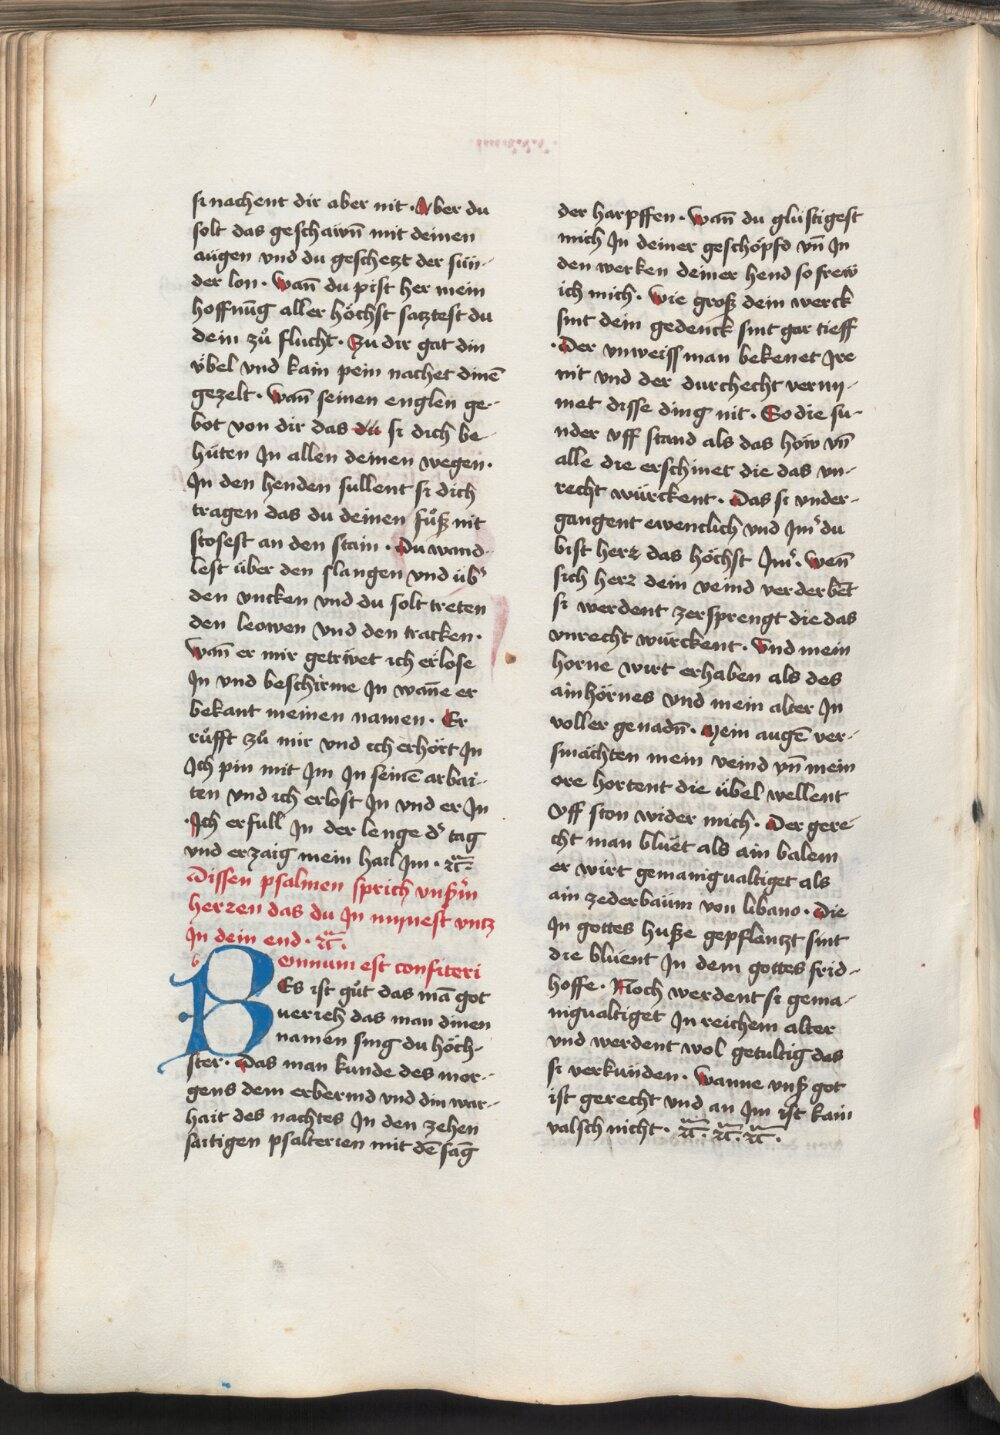 si nachent dir aber nit · Aber du
solt das geschawn̄ mit deinen
augen vnd du geschetzt der sün-
der lon · Wan̄ du pist her mein
hoffnūg aller höchst satztest du
dein zů flucht · Zu dir gat din
v̈bel vnd kain pein nachet dinē
gezelt · Wan̄ seinen englen ge-
bot von dir das du si dich be-
hüten Jn allen deinen wegen ·
Jn den henden sullent si dich
tragen das du deinen fůß nit
stosest an den stain · Du wand-
lest über den slangen vnd übˢ
den vncken vnd du solt treten
den leowen vnd den tracken ·
Wan̄ er mir getriwet ich erlöse
Jn vnd beschirme Jn wan̄e er
bekant meinen namen · Er
růfft zů mir vnd ich erhört Jn
Jch pin mit Jm Jn seinē arbai-
ten vnd ich erlost Jn vnd er Jn
· Jch erfull Jn der lenge dˢ tag
vnd erzaig mein hail Jm · ꝛc̄ ·
Dissen psalmen sprich
herzen das du Jn nymest vntz
Jn dein end · ꝛc̄ ·
Bonnum est confiteri
Es ist gůt das mā got
veriech das man dinen
namen sing du höch-
ster · Das man kunde des mor-
gens dem erbermd vnd din war-
hait des nachtes Jn den zehen
saitigen psalterien mit dē sāg
der harpffen · Wan̄ du glüstigest
mich Jn deiner geschöpfd vn̄ Jn
den werken deiner hend so frew
ich mich · Wie groß dein werck
sint dein gedenck sint gar tieff
· Der vnweiss man bekenet Jre
nit vnd der durchecht verny-
met disse ding nit · So die su-
nder vff stand als das höw vn̄
alle die erschinet die das vn-
recht würckent · Das si vnder-
gangent ewenclich vnd Jmˢ du
bist herz das höchst Jmˢ · Wen̄
sich herz dein veind verderbēt
si werdent zersprengt die das
vnrecht würckent · Vnd mein
horne wirt erhaben als des
ainhörnes vnd mein alter Jn
voller genadn̄ · Mein augē ver-
smächten mein veind vn̄ mein
ore hortent die übel wellent
Vff ston wider mich · Der gere-
cht man blüet als ain balem
er wirt gemanigualtiget als
ain zederbäum von libano · Die
Jn gottes huße gepflantzt sint
die blüent Jn dem gottes frid-
hoffe · Noch werdent si gema-
nigualtiget Jn reichem alter
vnd werdent wol getultig das
si verkünden · Wanne vnß got
ist gerecht vnd an Jm ist kain
valsch nicht · ꝛc̄ · ꝛc̄ · ꝛc̄ ·